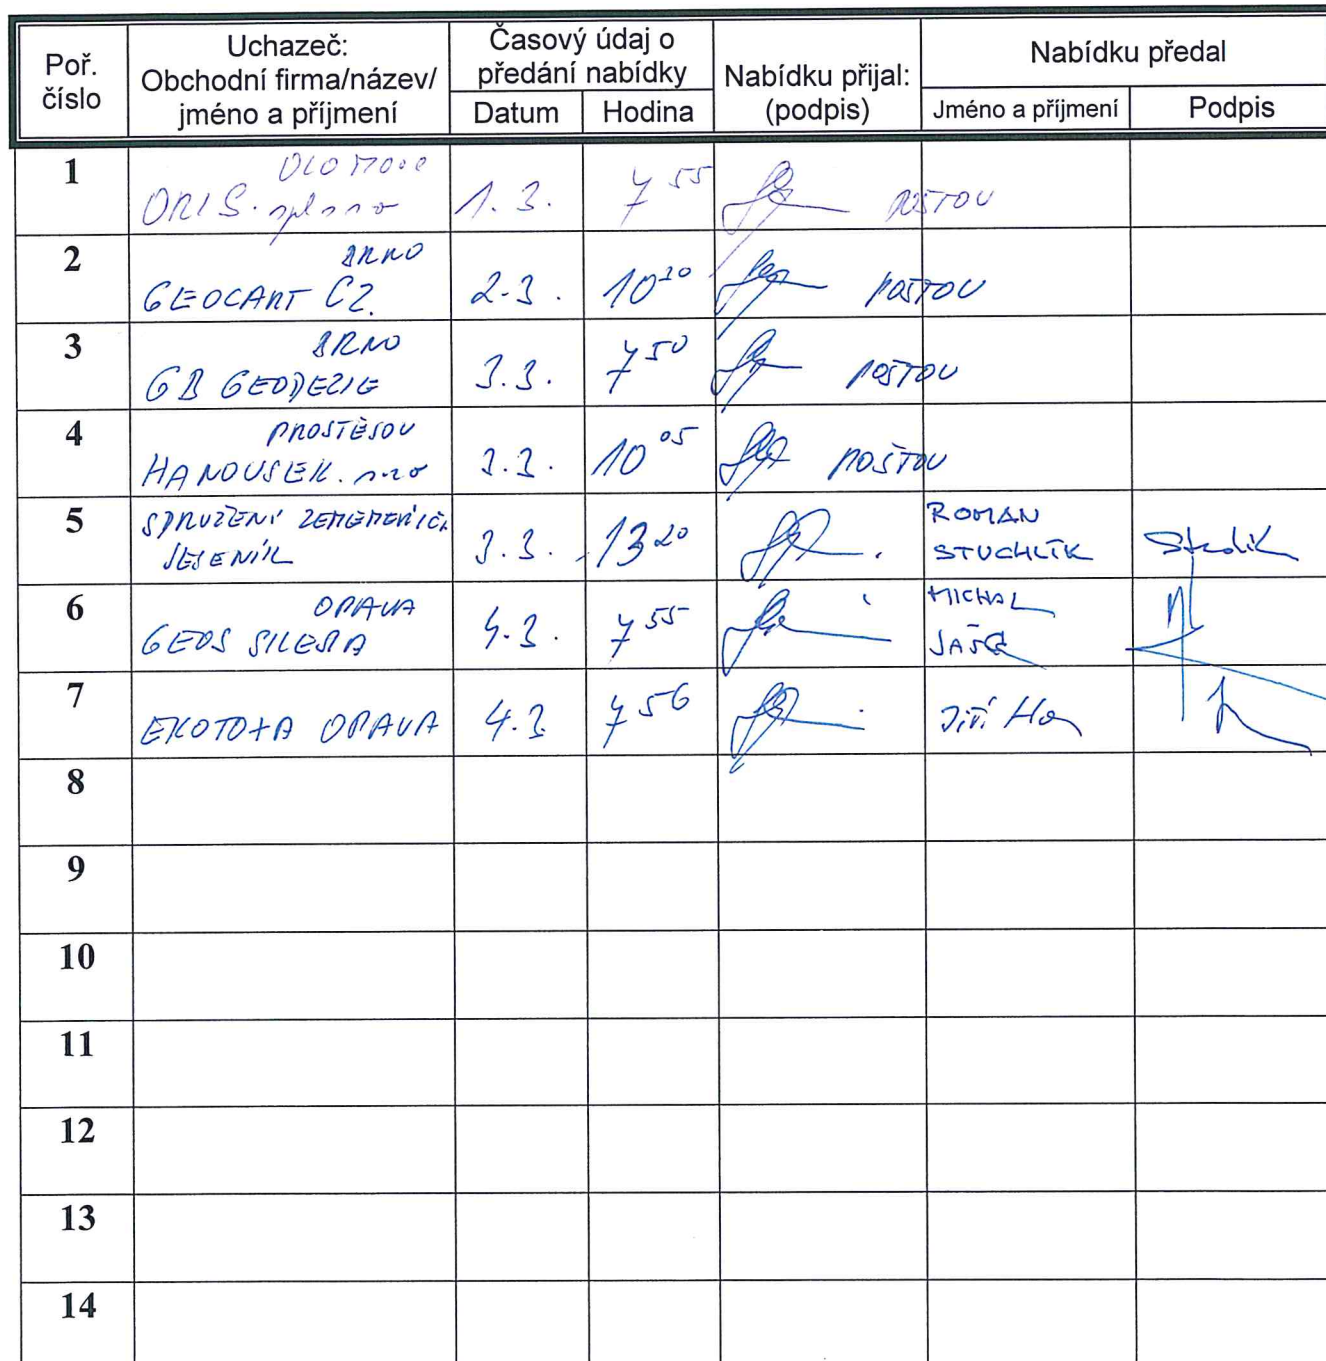 Poř. číslo
Uchazeč:
Obchodní firma/název/
jméno a příjmení
Časový údaj o
předání nabídky
Datum
Hodina
Nabídku přijal:
(podpis)
Nabídku předal
Jméno a příjmení
Podpis
1
OLOMOUC
ORIS. spl s r o 1. 3. 7 55 POŠTOU
2
BRNO
GEOCART CZ. 2.3. 10 20 POŠTOU
3
BRNO
GB GEODEZIE 3.3. 7 50 POŠTOU
4
PROSTĚJOV
HANOUSEK. s.r.o 3.3. 10 05 POŠTOU
5
SDRUŽENÍ ZEMĚMĚŘIČŮ
JESENÍK 3.3. 13 20
ROMAN
STUCHLÍK
6
OPAVA
GEOS SILESIA 4.3. 7 55
MICHAL
7
EKOTOXA OPAVA 4.3 7 56 Jiří
8
9
10
11
12
13
14